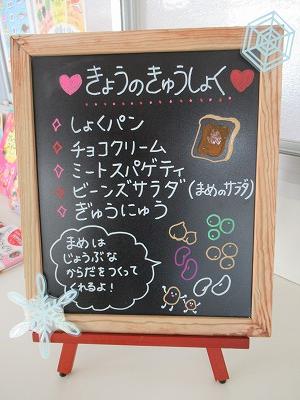 きょうのきゅうしょく
しょくパン
チョコクリーム
ミートスパゲティ
ビーンズサラダ(まめのサラダ)
ぎゅうにゅう
まめは
じょうぶな
からだをつくって
くれるよ!